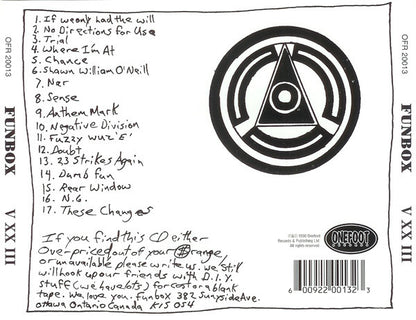 OFR 20013
FUNBOX
V XX III
1. If we only had the will
2. No Directions for Use
3. Trial
4. Where I'm At
5. Chance
6. Shawn William O'Neill
7. Ner
8. Sense
9. Anthem Mark
10. Negative Division
11. Fuzzy wuz'E!
12. Doubt
13. 23 Strikes Again
14. Damb fun
15. Rear Window
16. N.G.
17. These Changes
If you find this CD either
Overpriced out of your $range,
or unavailable please write us. we still
will hook up our friends with D.I.Y.
stuff (we have lots) for cost or a blank
tape. We love you. funbox 382 Sunnyside Ave.
Ottawa Ontario Canada K1S 0S4
℗&© 1996 Onefoot
Records & Publishing Ltd.
All rights reserved.
ONEFOOT
RECORDS
6 00922 00132 3
OFR 20013
FUNBOX
V XX III